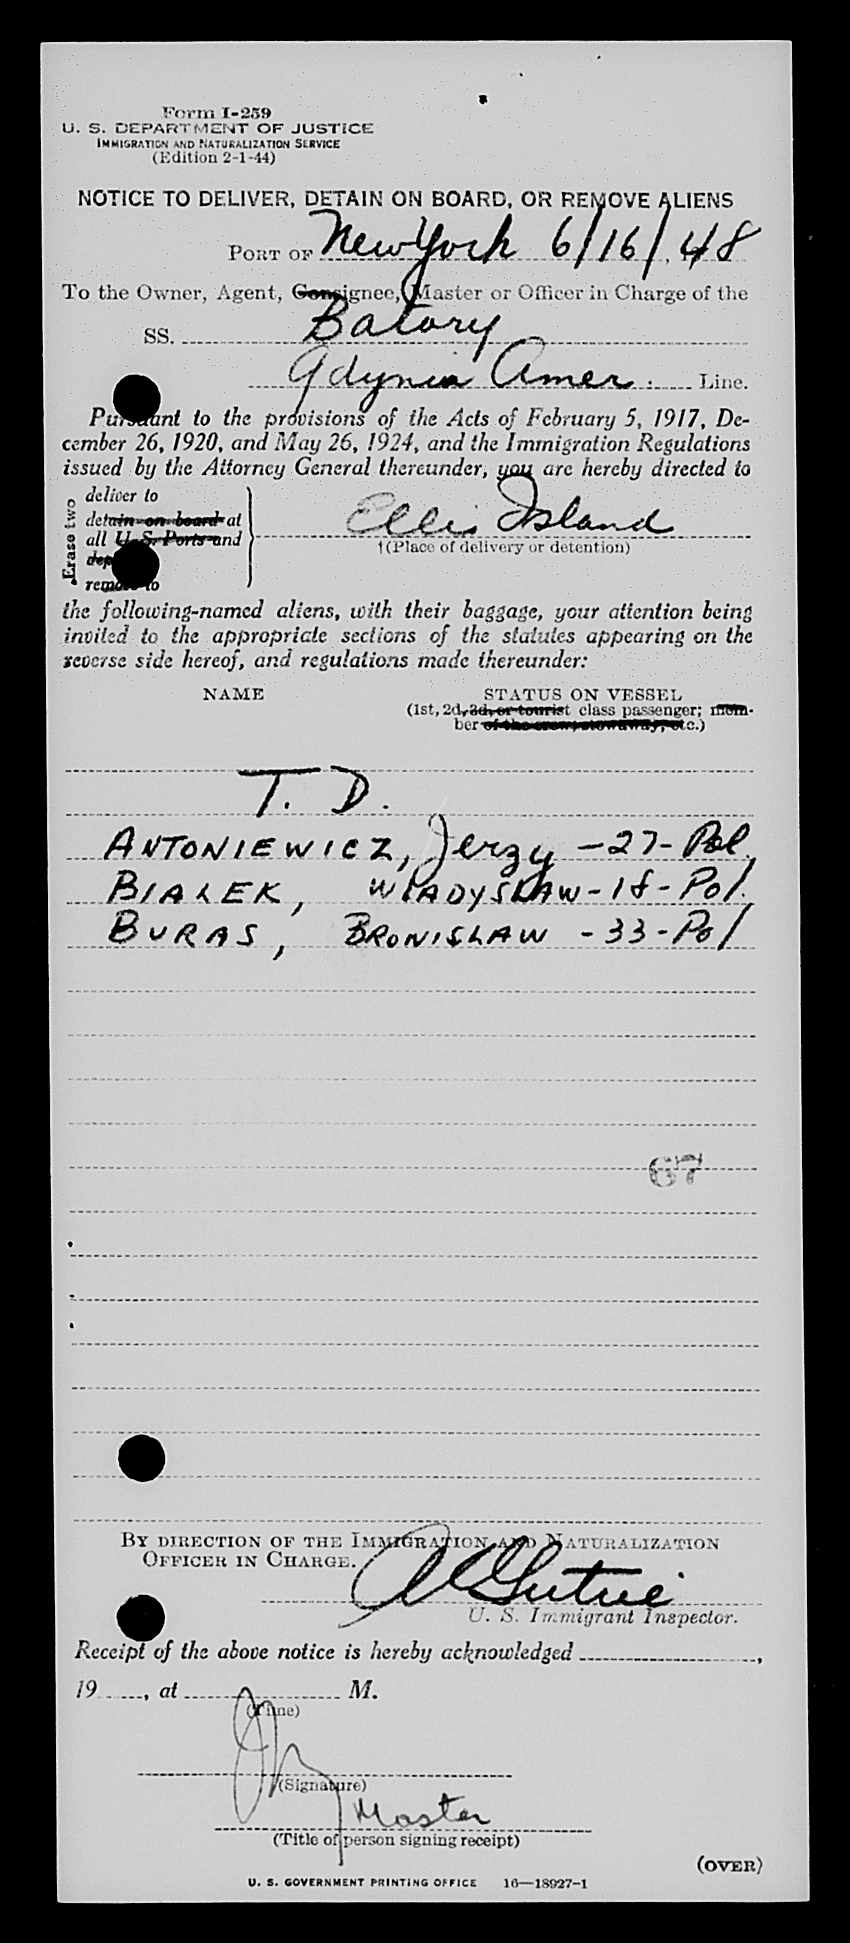 Form I-259
U. S. DEPARTMENT OF JUSTICE
IMMIGRATION AND NATURALIZATION SERVICE
(Edition 2-1-44)
NOTICE TO DELIVER, DETAIN ON BOARD, OR REMOVE ALIENS
PORT OF New York 6/16/, 48
To the Owner, Agent, Consignee, Master or Officer in Charge of the
SS. Batory
Gdynia Amer. Line.
Pursuant to the provisions of the Acts of February 5, 1917, De-
cember 26, 1920, and May 26, 1924, and the Immigration Regulations
issued by the Attorney General thereunder, you are hereby directed to
Erase two
deliver to
detain on board at
all U. S. Ports and
remove to
Ellis Island
†(Place of delivery or detention)
the following-named aliens, with their baggage, your attention being
invited to the appropriate sections of the statutes appearing on the
reverse side hereof, and regulations made thereunder:
NAME STATUS ON VESSEL
(1st, 2d, 3d, or tourist class passenger; mem-
ber of the crew, stowaway, etc.)
T. D.
ANTONIEWICZ, Jerzy - 27 - Pol.
BIALEK, WLADYSLAW - 18 - Pol.
BURAS, BRONISLAW - 33 - Pol
67
BY DIRECTION OF THE IMMIGRATION AND NATURALIZATION
OFFICER IN CHARGE.
U. S. Immigrant Inspector.
Receipt of the above notice is hereby acknowledged ,
19 , at M.
(Time)
(Signature)
Master
(Title of person signing receipt)
(OVER)
U. S. GOVERNMENT PRINTING OFFICE 16—18927-1